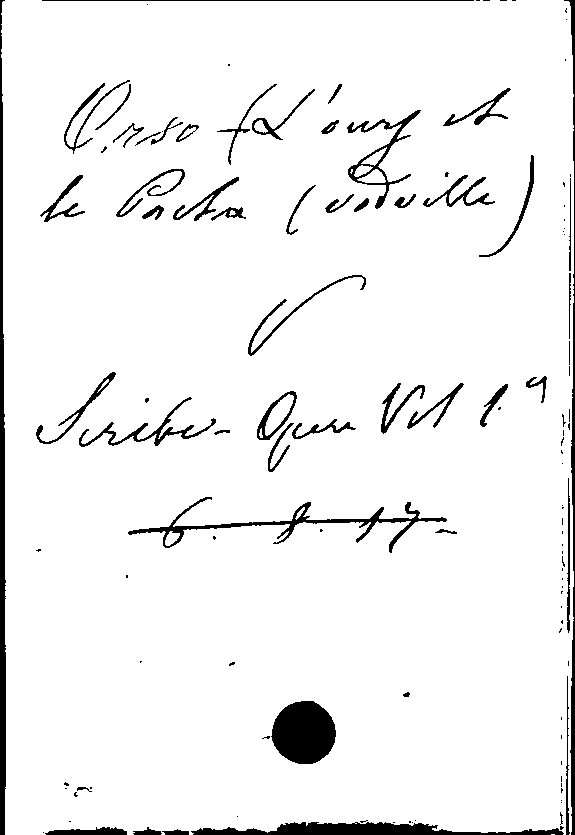 Orso (L'ours et
le Pacha (vodville)
V
Scribe - Opere Vol 1.º
6. 8. 17-